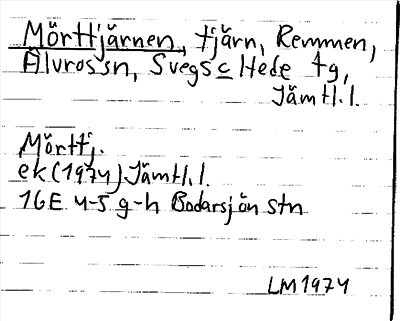 Mörttjärnen, tjärn, Remmen,
Älvros sn, Svegs o Hede tg,
Jämtl.l.
Mörttj.
ek (1974) Jämtl.l.
16E 4-5 g-h Bodarsjön stn
LM 1974